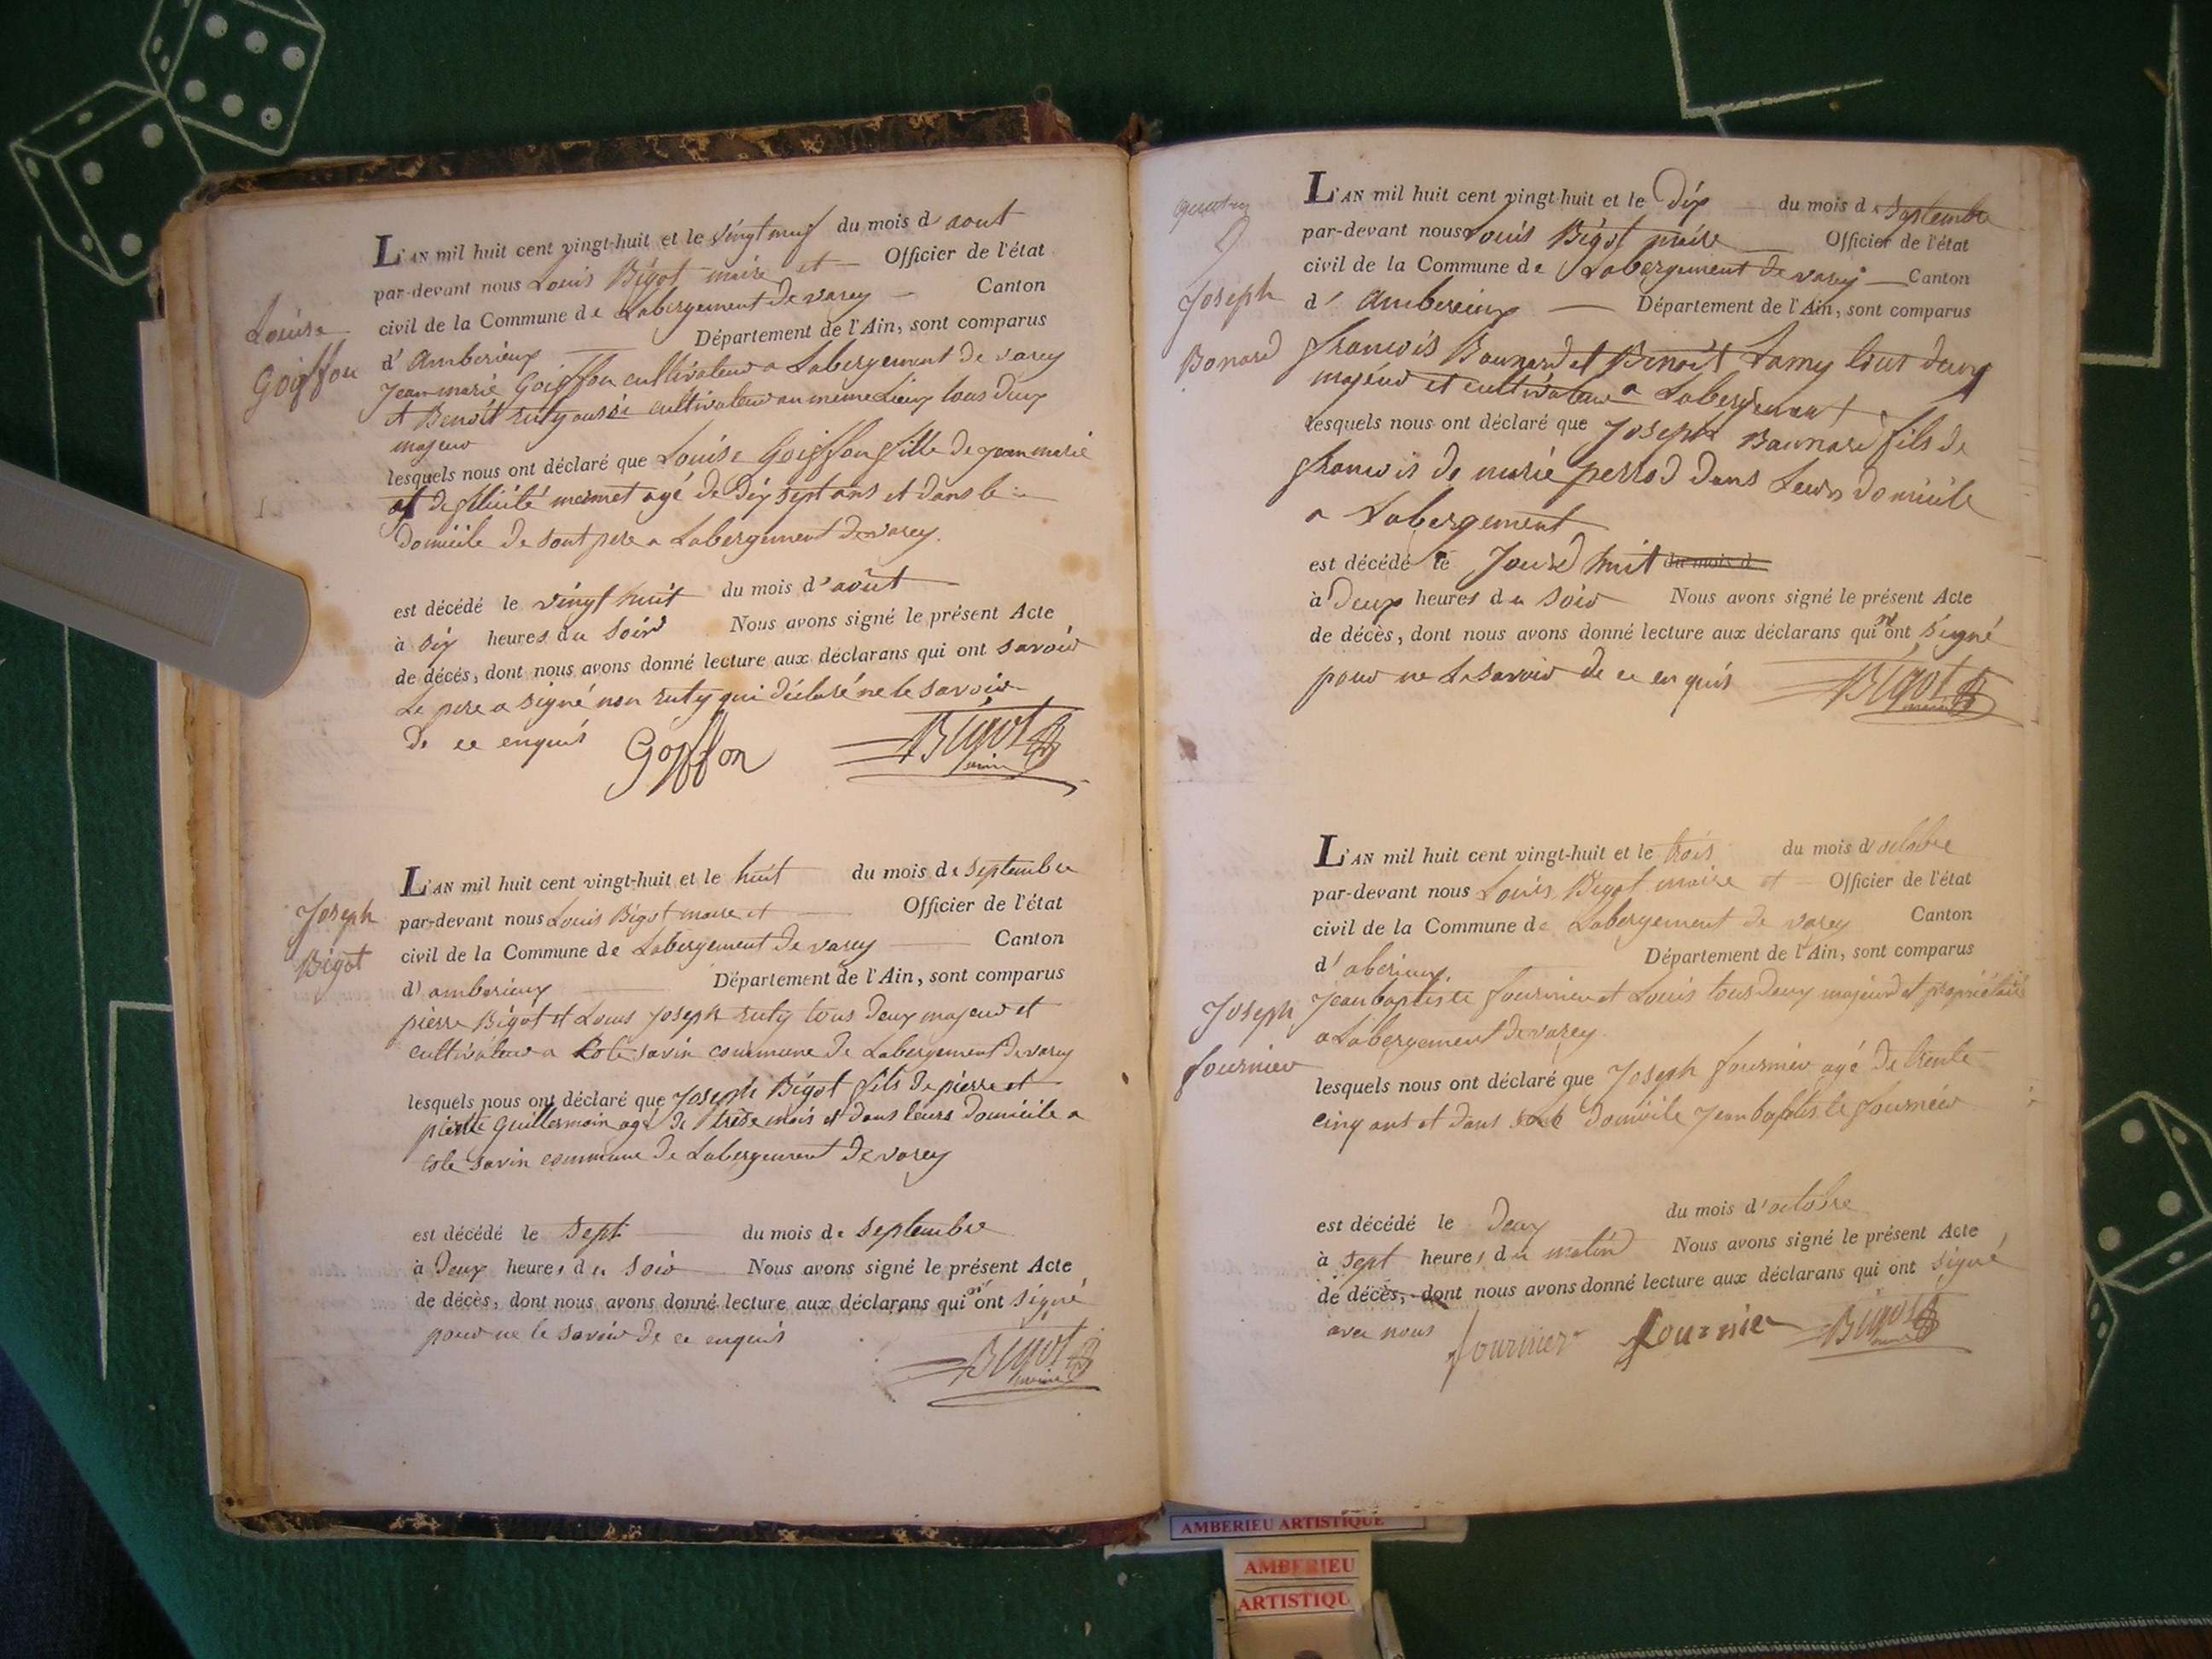 Louise
Goiffon
L'AN mil huit cent vingt-huit et le vingt neuf du mois d'aout
par-devant nous Louis Bigot maire et Officier de l'état
civil de la Commune de Labergement de varey Canton
d'Amberieux Département de l'Ain, sont comparus
Jean marie Goiffon cultivateur a Labergement de varey
et Benoit ruty aussi cultivateur au meme Lieux tous deux
majeur
lesquels nous ont déclaré que Louise Goiffon fille de jean marie
et de félicité mermet agé de dix sept ans et dans le
domicile de sont pere a Labergement de varey.
est décédé le vingt huit du mois d'août
à six heures du soir Nous avons signé le présent Acte
de décés, dont nous avons donné lecture aux déclarans qui ont savoir
Le pere a signé non ruty qui déclaré ne le savoir
de ce enquis Goiffon Bigot
maire
Joseph
Bigot
L'AN mil huit cent vingt-huit et le huit du mois de septembre
par-devant nous Louis Bigot maire et Officier de l'état
civil de la Commune de Labergement de varey Canton
d'amberieux Département de l'Ain, sont comparus
pierre Bigot et Louis joseph ruty tous deux majeur et
cultivateur a Cote savin commune de Labergement de varey
lesquels nous ont déclaré que Joseph Bigot fils de pierre et
Guillermoin agé de trese mois et dans leurs domicile a
cote savin commune de Labergement de varey
est décédé le sept du mois de septembre
à deux heures du soir Nous avons signé le présent Acte
de décès, dont nous avons donné lecture aux déclarans qui n'ont signé
pour ne le savoir de ce enquis
Bigot
maire
Joseph
Bonard
L'AN mil huit cent vingt-huit et le dix du mois de septembre
par-devant nous Louis Bigot maire Officier de l'état
civil de la Commune de Labergement de varey Canton
d'Amberieux Département de l'Ain, sont comparus
francois Baunard et Benoit Lamy tous deux
majeur et cultivateur a Labergement
lesquels nous ont déclaré que Joseph Baunard fils de
francois de marie perrod dans Leurs domicile
a Labergement
est décédé le Jourd huit du mois d
à deux heures du soir Nous avons signé le présent Acte
de décès, dont nous avons donné lecture aux déclarans qui n'ont signé
pour ne Le savoir de ce enquis Bigot
maire
Joseph
fournier
L'AN mil huit cent vingt-huit et le trois du mois d'octobre
par-devant nous Louis Bigot maire et Officier de l'état
civil de la Commune de Labergement de varey Canton
d'aberieux. Département de l'Ain, sont comparus
jean baptiste fournier et Louis tous deux majeur et propriétaire
a Labergement de varey.
lesquels nous ont déclaré que Joseph fournier agé de trente
cinq ans et dans domicile jean baptiste fournier
est décédé le deux du mois d'octobre
à sept heures du matin Nous avons signé le présent Acte
de décès, dont nous avons donné lecture aux déclarans qui ont signé
avec nous fournier fournier Bigot
maire
AMBERIEU ARTISTIQUE
AMBERIEU
ARTISTIQU